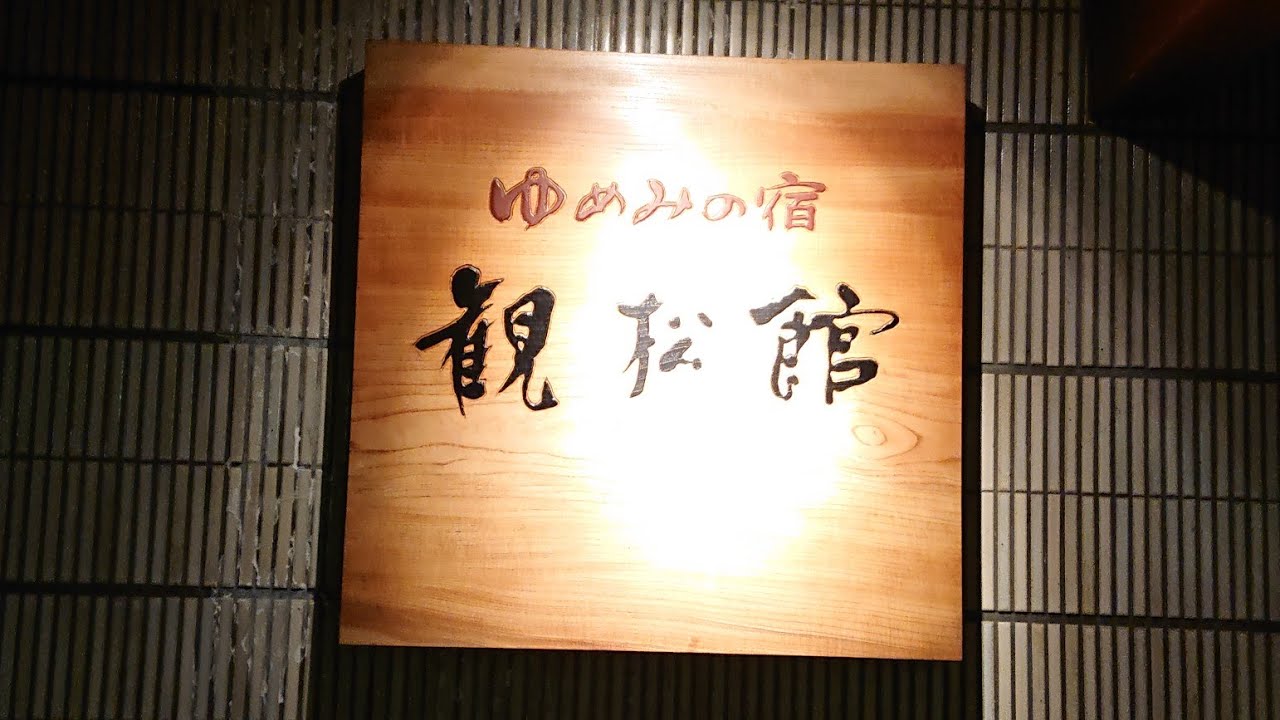 ゆめみの宿
観松館